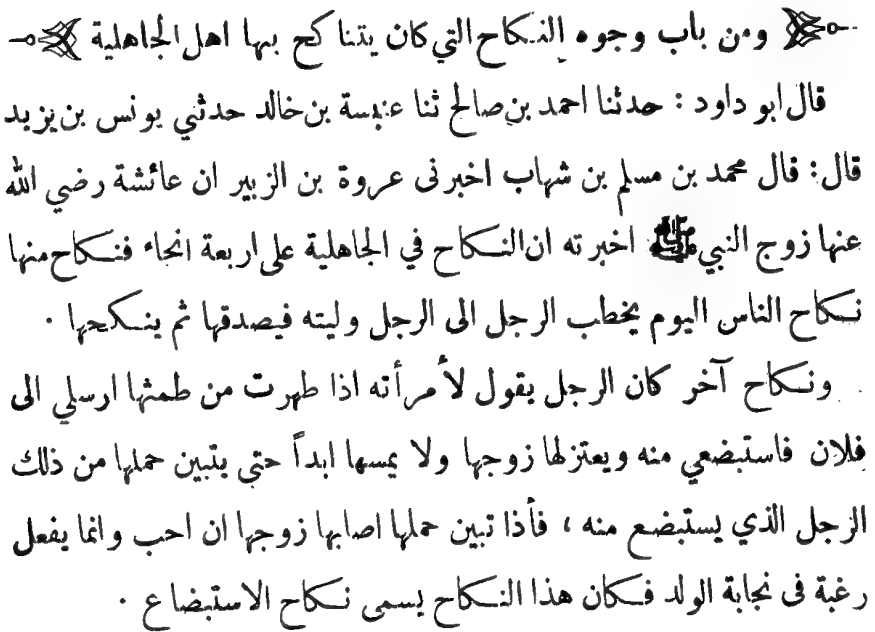 ومن باب وجوه النكاح التي كان يتناكح بها اهل الجاهلية
قال ابو داود : حدثنا احمد بن صالح ثنا عنبسة بن خالد حدثني يونس بن يزيد
قال : قال محمد بن مسلم بن شهاب اخبرنى عروة بن الزبير ان عائشة رضي الله
عنها زوج النبي ﷺ اخبرته ان النكاح في الجاهلية على اربعة انحاء فنكاح منها
نكاح الناس اليوم يخطب الرجل الى الرجل وليته فيصدقها ثم ينكحها ·
ونكاح آخر كان الرجل يقول لأمرأته اذا طهرت من طمثها ارسلي الى
فلان فاستبضعي منه ويعتزلها زوجها ولا يمسها ابداً حتى يتبين حملها من ذلك
الرجل الذي يستبضع منه ، فأذا تبين حملها اصابها زوجها ان احب وانما يفعل
رغبة في نجابة الولد فكان هذا النكاح يسمى نكاح الاستبضاع ·